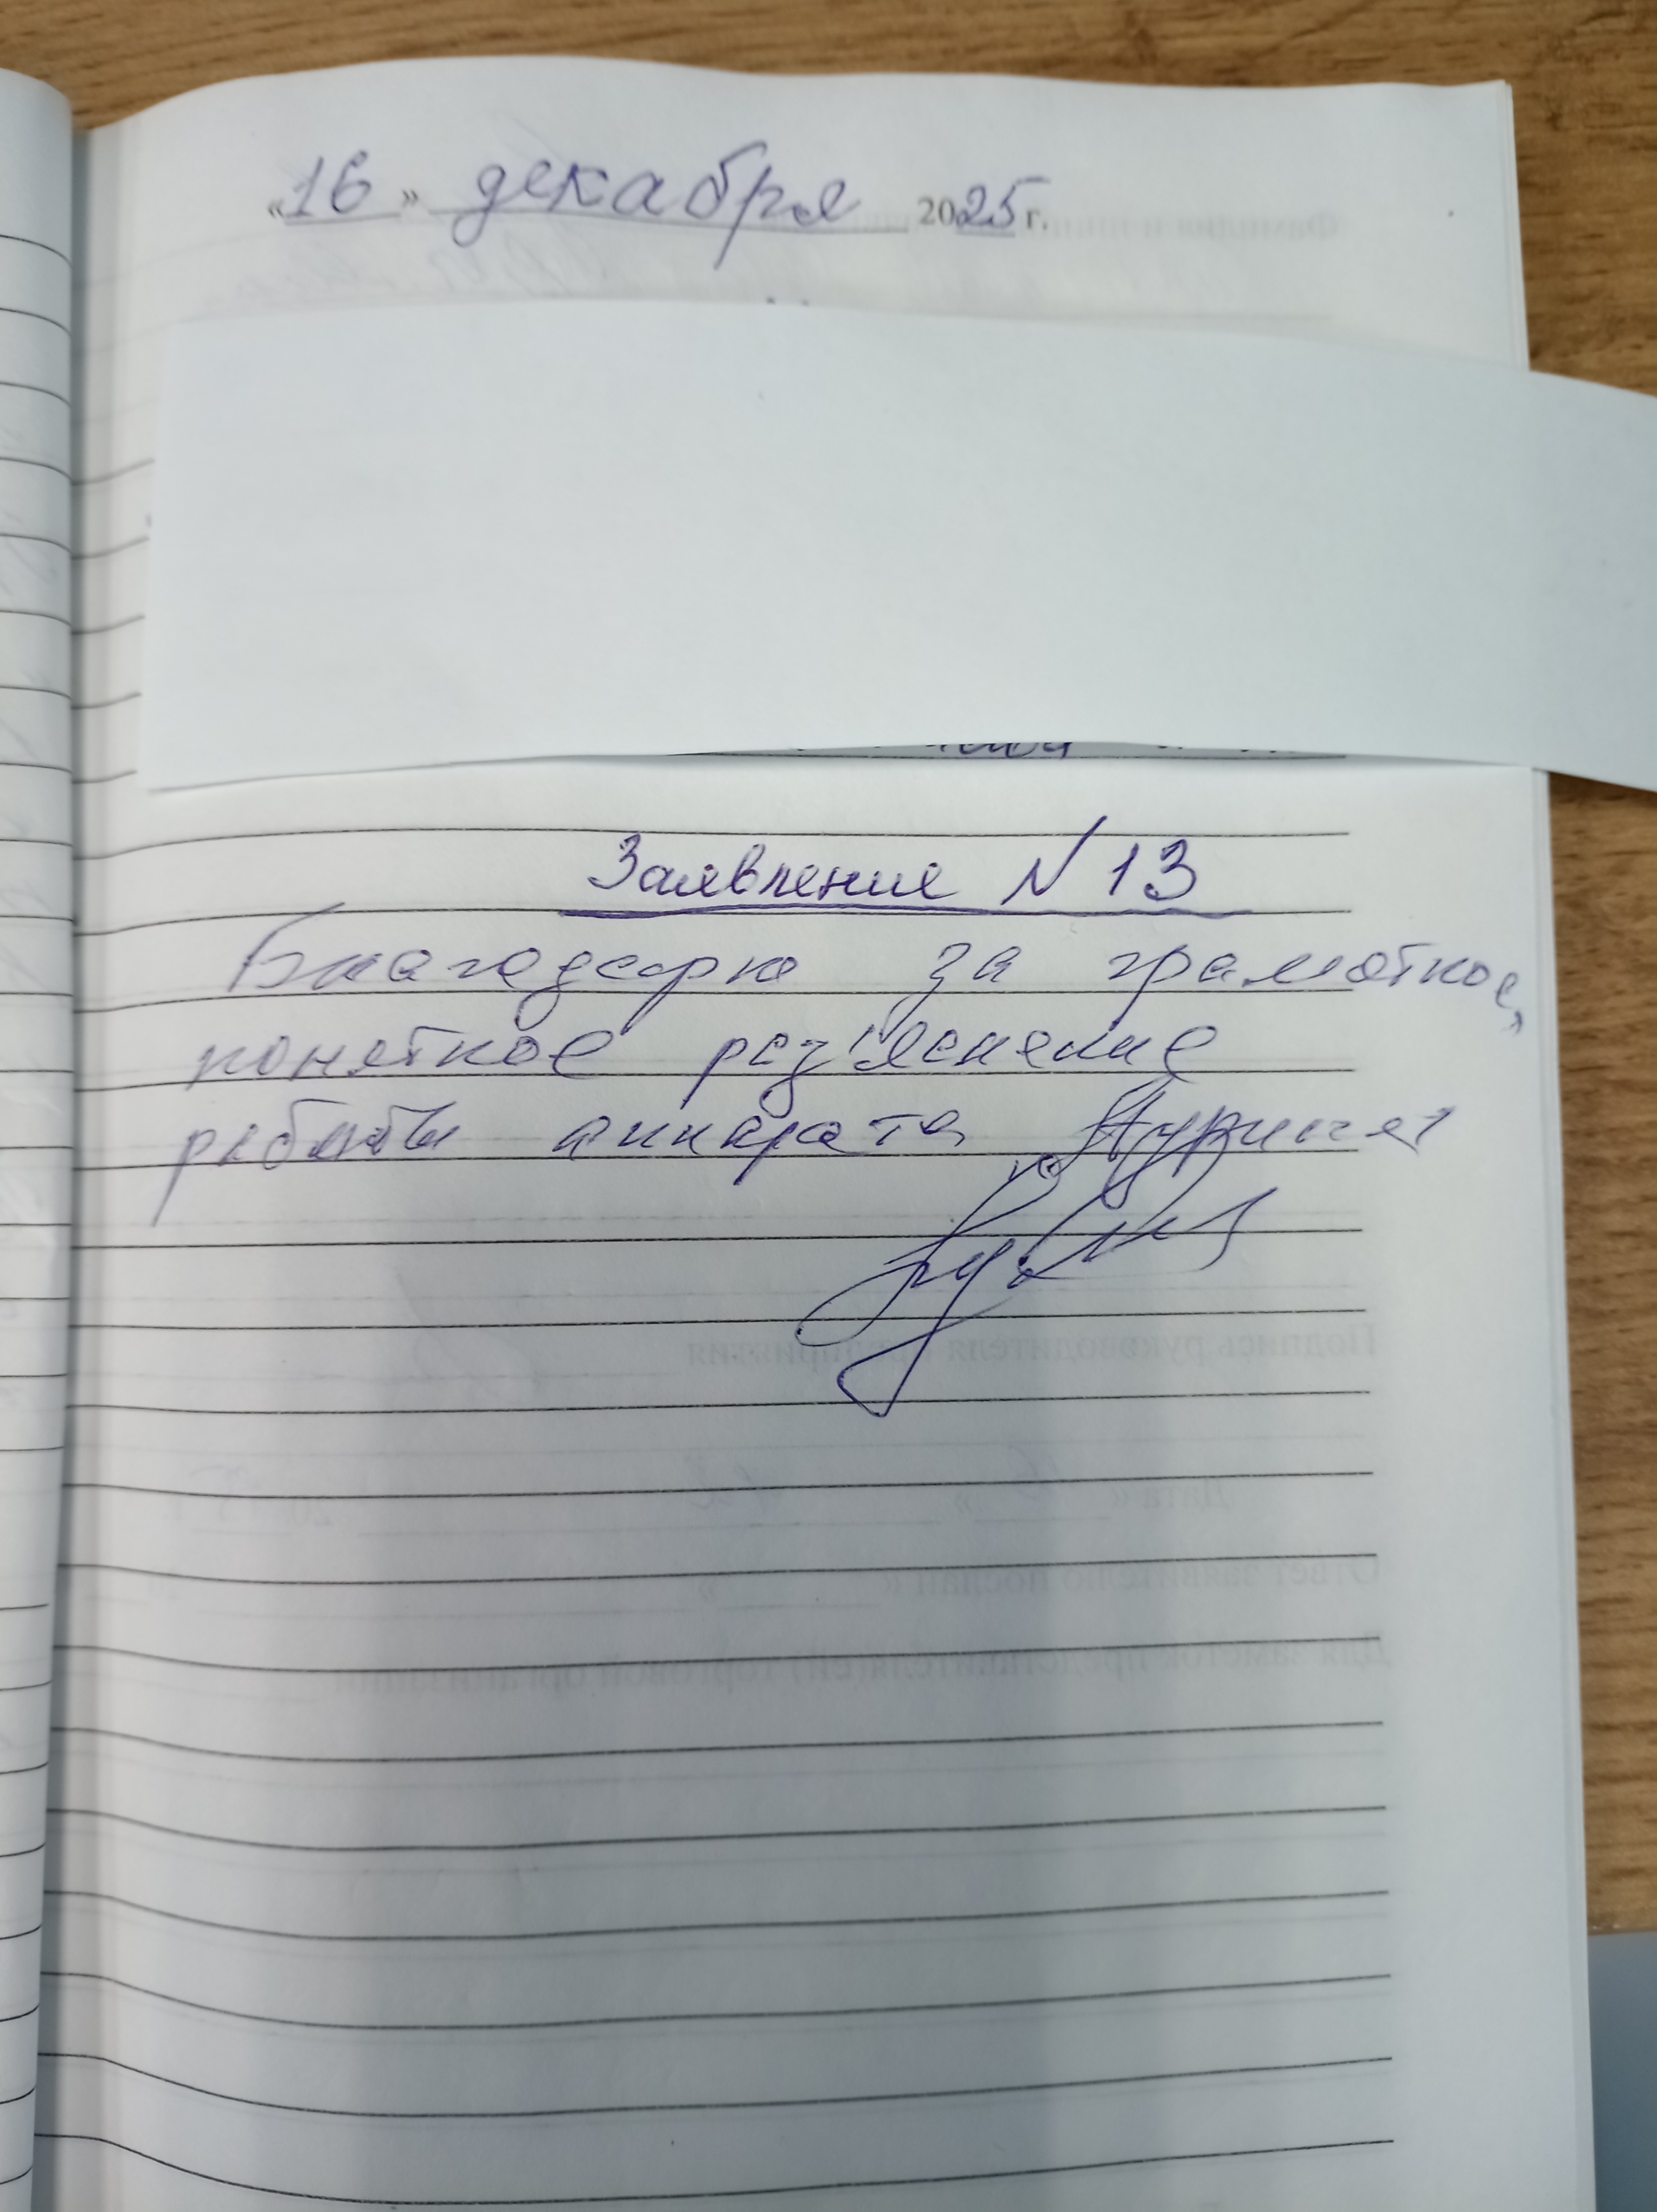 «16» декабря 2025 г.
Заявление N 13
Благодарю за грамотное,
понятное раз'яснение
работы аппарата